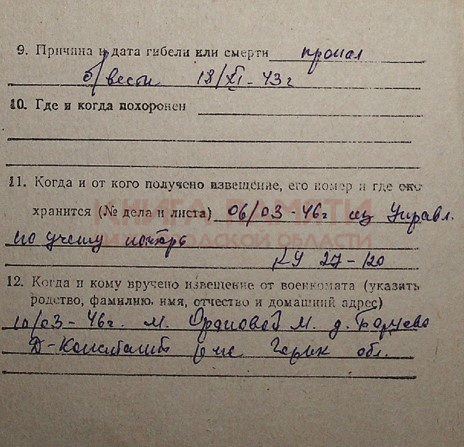 9. Причина и дата гибели или смерти пропал
б/вести 18/XI-43г
10. Где и когда похоронен
11. Когда и от кого получено извещение, его номер и где оно
хранится (№ дела и листа) 06/03-46г из Управл.
по учету потерь
КУ 27-120
12. Когда и кому вручено извещение от военкомата (указать
родство, фамилию, имя, отчество и домашний адрес)
10/03-46г. М. М. д.
Д-Констант Горьк обл.
КНИГА ПАМЯТИ
НИЖЕГОРОДСКОЙ ОБЛАСТИ